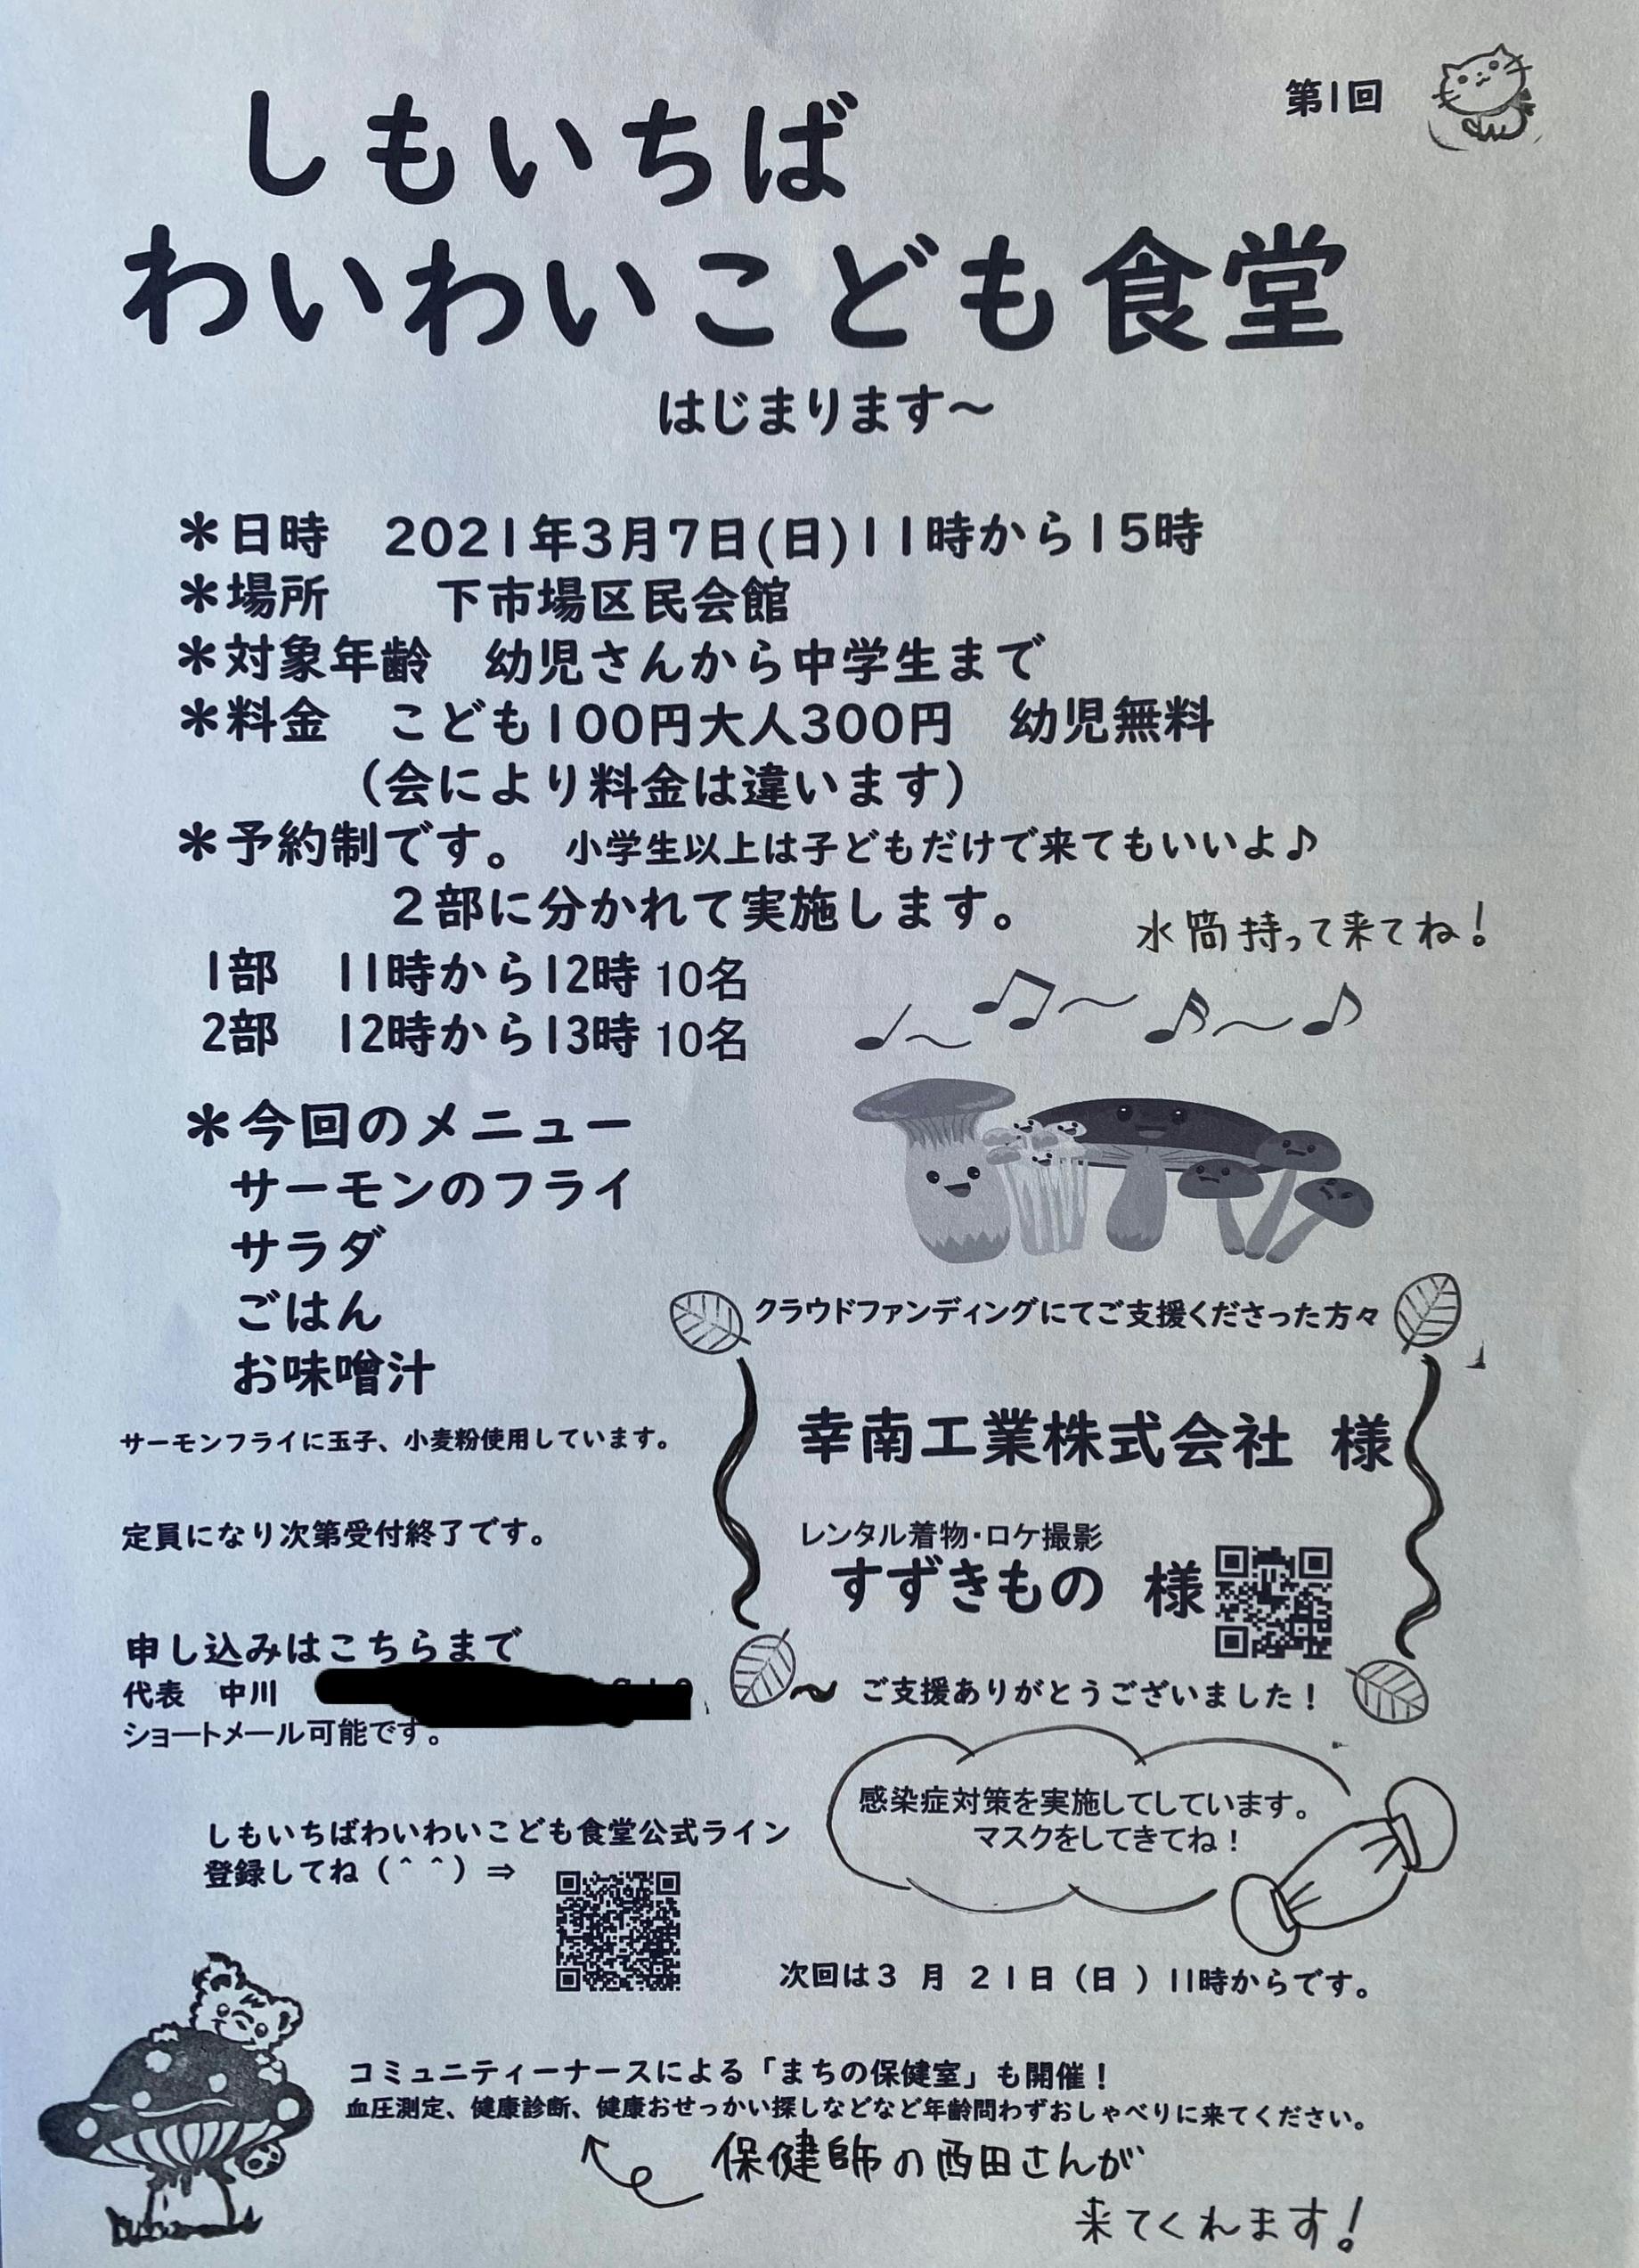 第1回
しもいちば
わいわいこども食堂
はじまります～
＊日時　2021年3月7日(日)11時から15時
＊場所　下市場区民会館
＊対象年齢　幼児さんから中学生まで
＊料金　こども100円大人300円　幼児無料
（会により料金は違います）
＊予約制です。　小学生以上は子どもだけで来てもいいよ♪
２部に分かれて実施します。
水筒持って来てね！
1部　11時から12時 10名
2部　12時から13時 10名
＊今回のメニュー
サーモンのフライ
サラダ
ごはん
お味噌汁
サーモンフライに玉子、小麦粉使用しています。
定員になり次第受付終了です。
クラウドファンディングにてご支援くださった方々
幸南工業株式会社　様
レンタル着物・ロケ撮影
すずきもの　様
～ ご支援ありがとうございました！
申し込みはこちらまで
代表　中川
ショートメール可能です。
感染症対策を実施してしています。
マスクをしてきてね！
しもいちばわいわいこども食堂公式ライン
登録してね（＾＾）⇒
次回は３ 月 ２１日（日 ）11時からです。
コミュニティーナースによる「まちの保健室」も開催！
血圧測定、健康診断、健康おせっかい探しなどなど年齢問わずおしゃべりに来てください。
保健師の西田さんが
来てくれます！